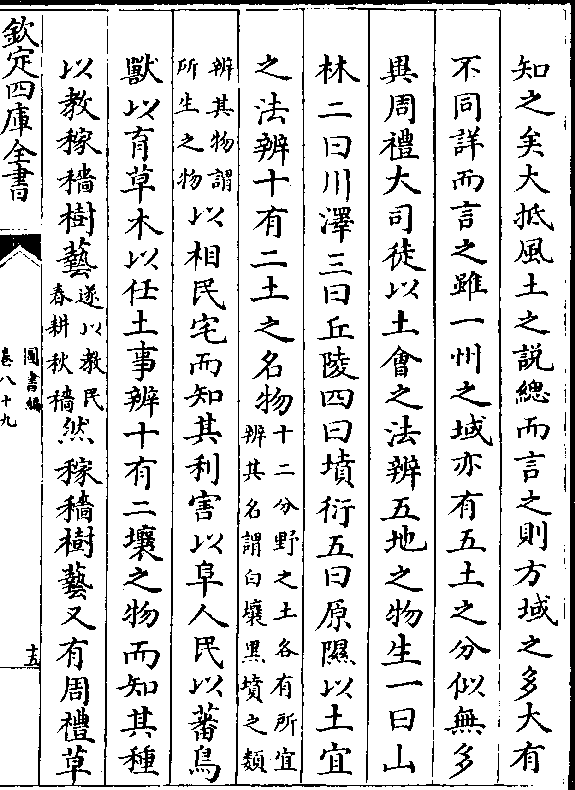 知之矣大抵風土之說總而言之則方域之多大有
不同詳而言之雖一州之域亦有五土之分似無多
異周禮大司徒以土會之法辨五地之物生一曰山
林二曰川澤三曰丘陵四曰墳衍五曰原隰以土宜
之法辨十有二土之名物十二分野之土各有所宜
辨其名謂白壤黑墳之類
辨其物謂
所生之物以相民宅而知其利害以阜人民以蕃鳥
獸以育草木以任土事辨十有二壤之物而知其種
以教稼穡樹藝遂以教民
春耕秋穡然稼穡樹藝又有周禮草
欽定四庫全書
圖書編
卷八十九
十五